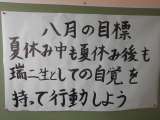 八月の目標
夏休み中も夏休み後も
瑞二生としての自覚を
持って行動しよう